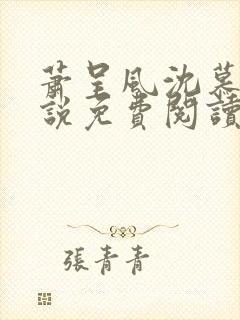 蕭呈風沈慕
說免費閱讀
張青青